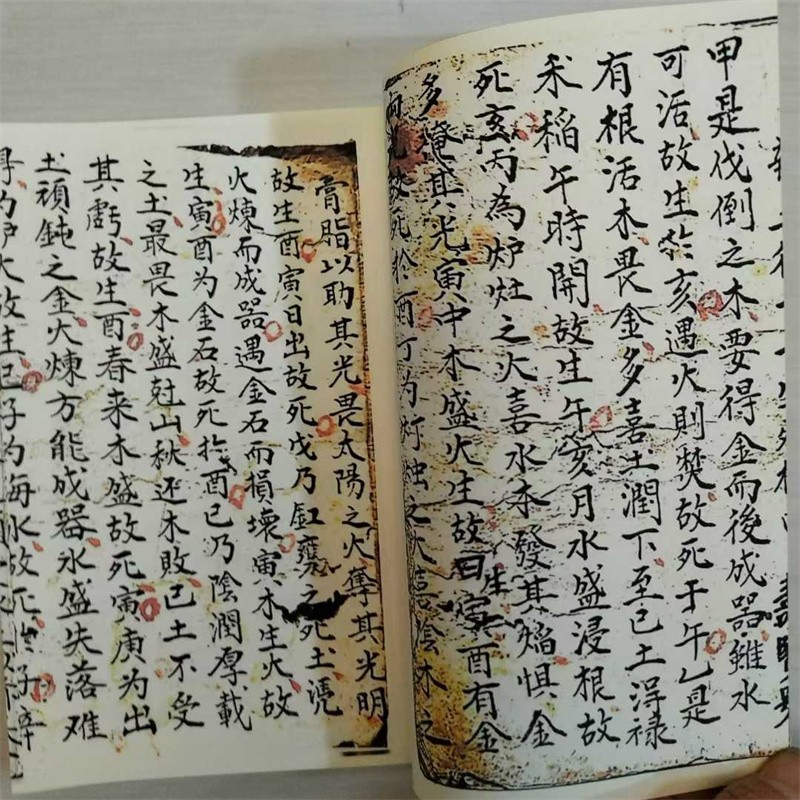 甲是伐倒之木要得金而後成器雖水
可活故生於亥遇火則焚故死于午乙是
有根活木畏金多喜土潤下至己土得禄
禾稲午時開故生午亥月水盛浸根故
死亥丙為炉灶之火喜水木發其焰惧金
多掩其光寅中木盛火生故曰生寅酉有金
光故死於酉丁为灯烛之火喜陰木之
膏脂以助其光畏太陽之火奪其光明
故生酉寅日出故死戊乃缸甕之死土澆
火煉而成器遇金石而損壞寅木生火故
生寅酉为金石故死於酉已乃陰潤厚載
之土最畏木盛尅山秋还木敗已土不受
其虧故生酉春来木盛故死寅庚为出
土頑鈍之金火煉方能成器水盛失落难
得为炉火故生巳子为海水故死於子辛